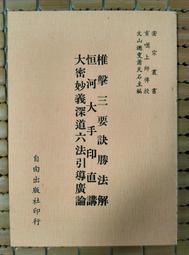 密宗叢書
貢噶上師傳授
文山遯叟蕭天石主編
椎擊三要訣勝法解
恒河大手印直講
大密妙義深道六法引導廣論
自由出版社印行